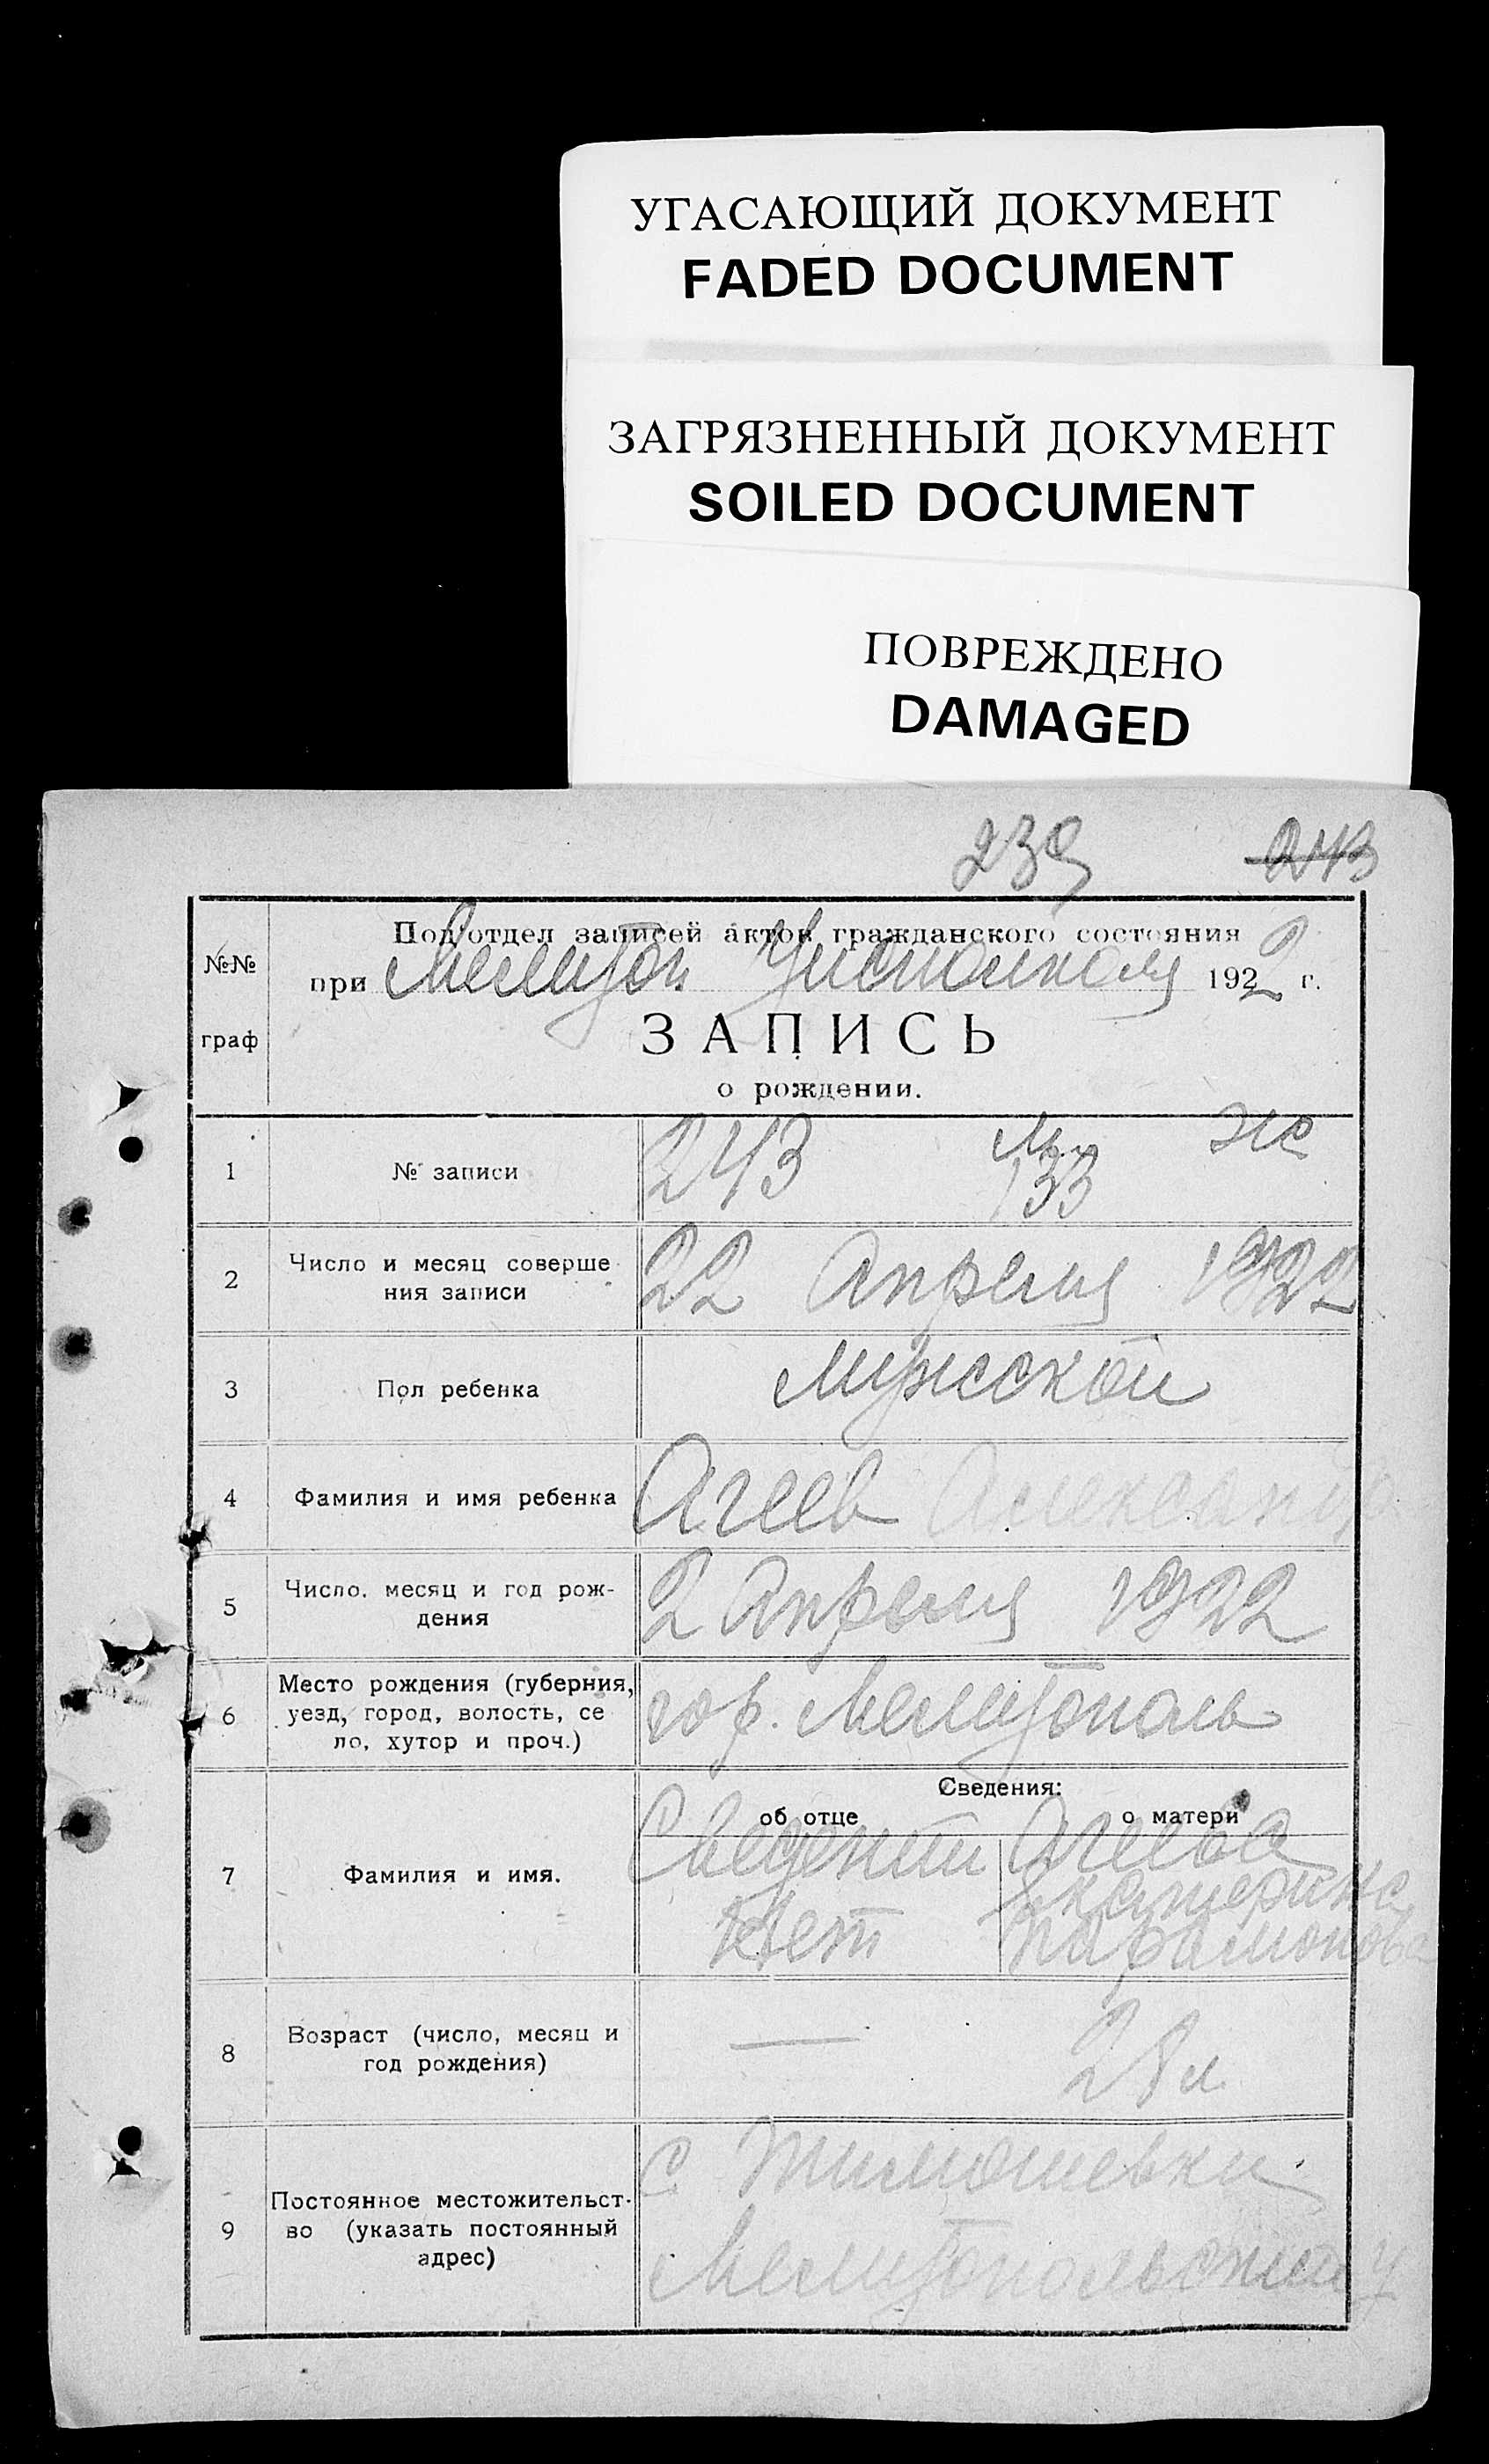 УГАСАЮЩИЙ ДОКУМЕНТ
FADED DOCUMENT
ЗАГРЯЗНЕННЫЙ ДОКУМЕНТ
SOILED DOCUMENT
ПОВРЕЖДЕНО
DAMAGED
239 243
№№ граф
Подотдел записей актов гражданского состояния
при Мелитоп 1922 г.
ЗАПИСЬ
о рождении.
1 № записи 243 м. 133 ж
2 Число и месяц соверше
ния записи 22 Апреля 1922
3 Пол ребенка мужской
4 Фамилия и имя ребенка Агеев Александр
5 Число, месяц и год рож-
дения 2 Апреля 1922
6 Место рождения (губерния,
уезд, город, волость, се
ло, хутор и проч.) гор. Мелитополь
Сведения:
об отце о матери
7 Фамилия и имя.
Сведений
Нет
Агеева
Екатерина
Парамонова
8 Возраст (число, месяц и
год рождения) — 28 л
9 Постоянное местожительст-
во (указать постоянный
адрес)
с Тимошевки
Мелитопольский у